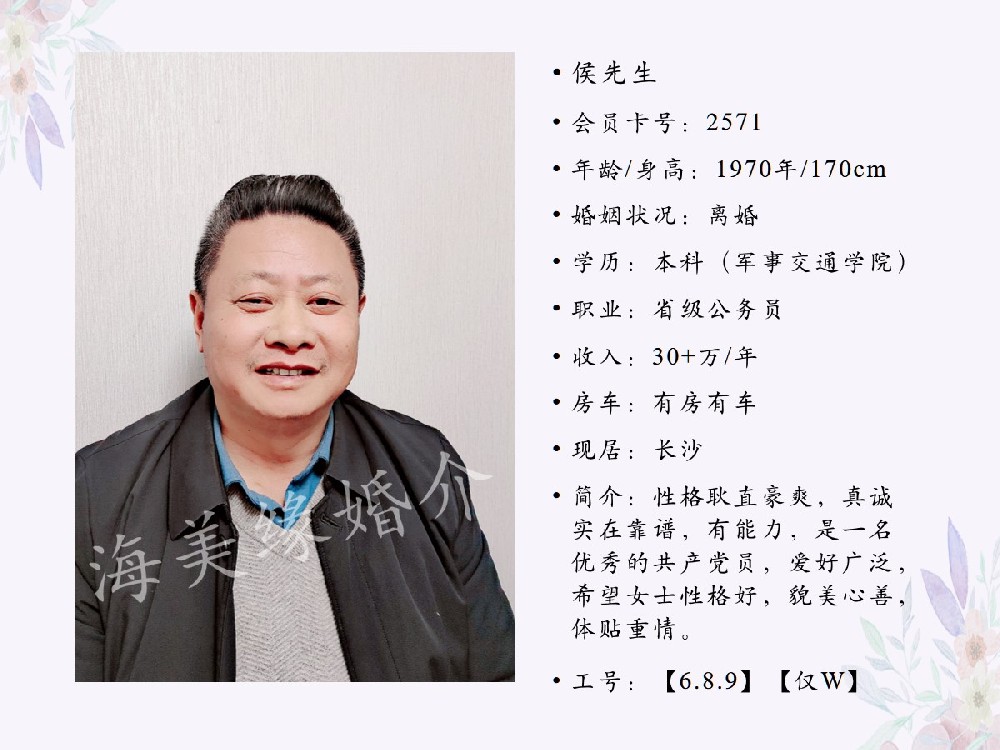 • 侯先生
• 会员卡号：2571
• 年龄/身高：1970年/170cm
• 婚姻状况：离婚
• 学历：本科（军事交通学院）
• 职业：省级公务员
• 收入：30+万/年
• 房车：有房有车
• 现居：长沙
• 简介：性格耿直豪爽，真诚
实在靠谱，有能力，是一名
优秀的共产党员，爱好广泛，
希望女士性格好，貌美心善，
体贴重情。
• 工号：【6.8.9】【仅W】
海美缘婚介